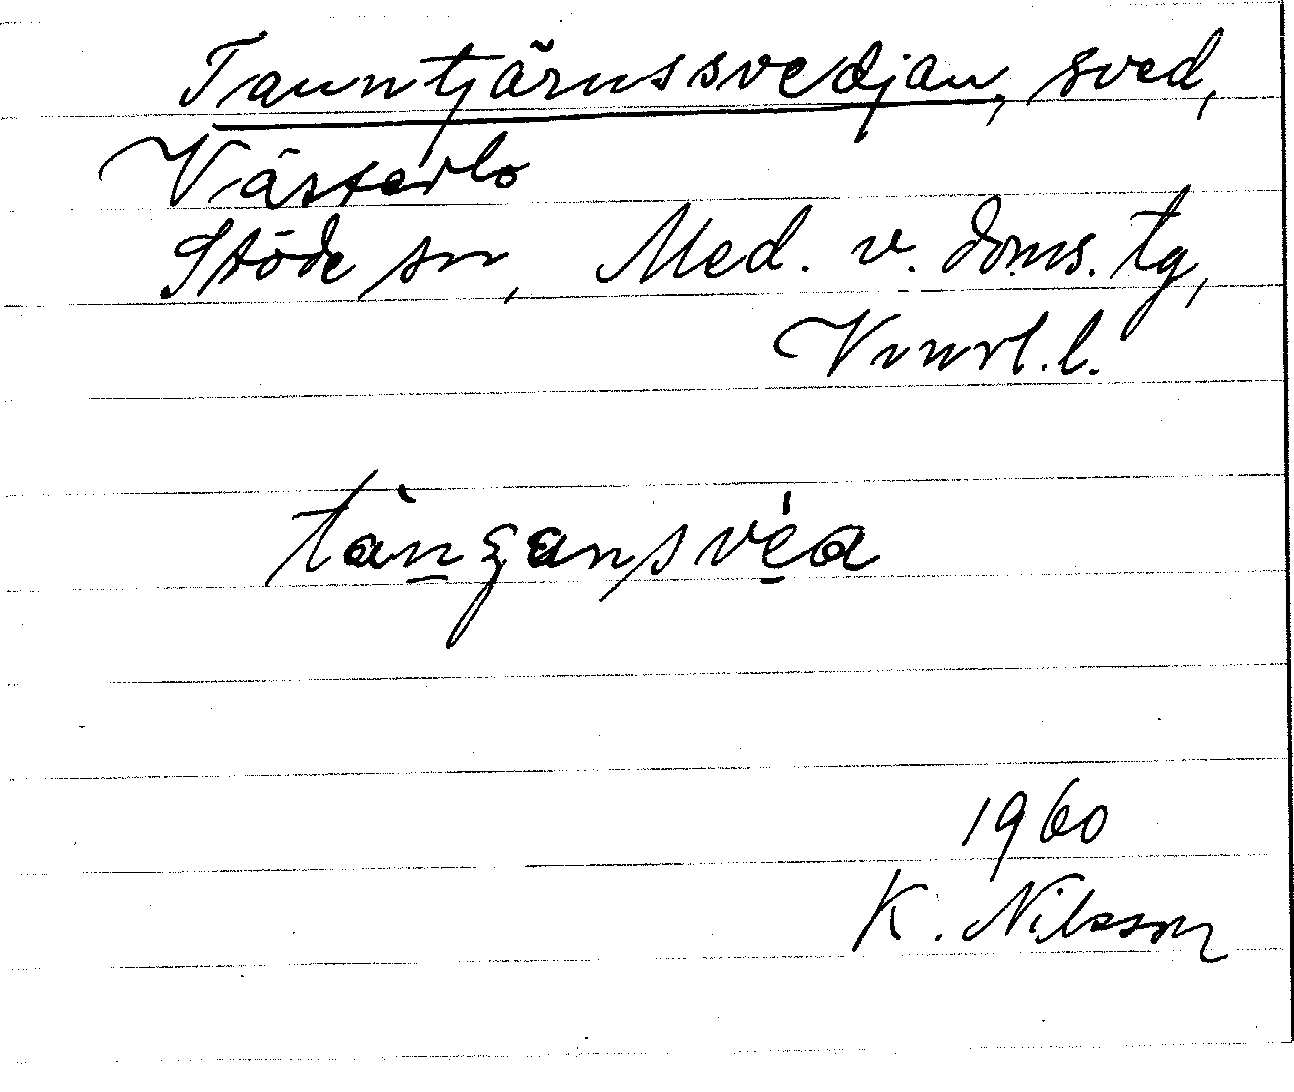 Tanntjärnssvedjan, sved,
Västerlo
Stöde sn, Med. v. doms. tg,
Vnorl. l.
1960
K. Nilsson